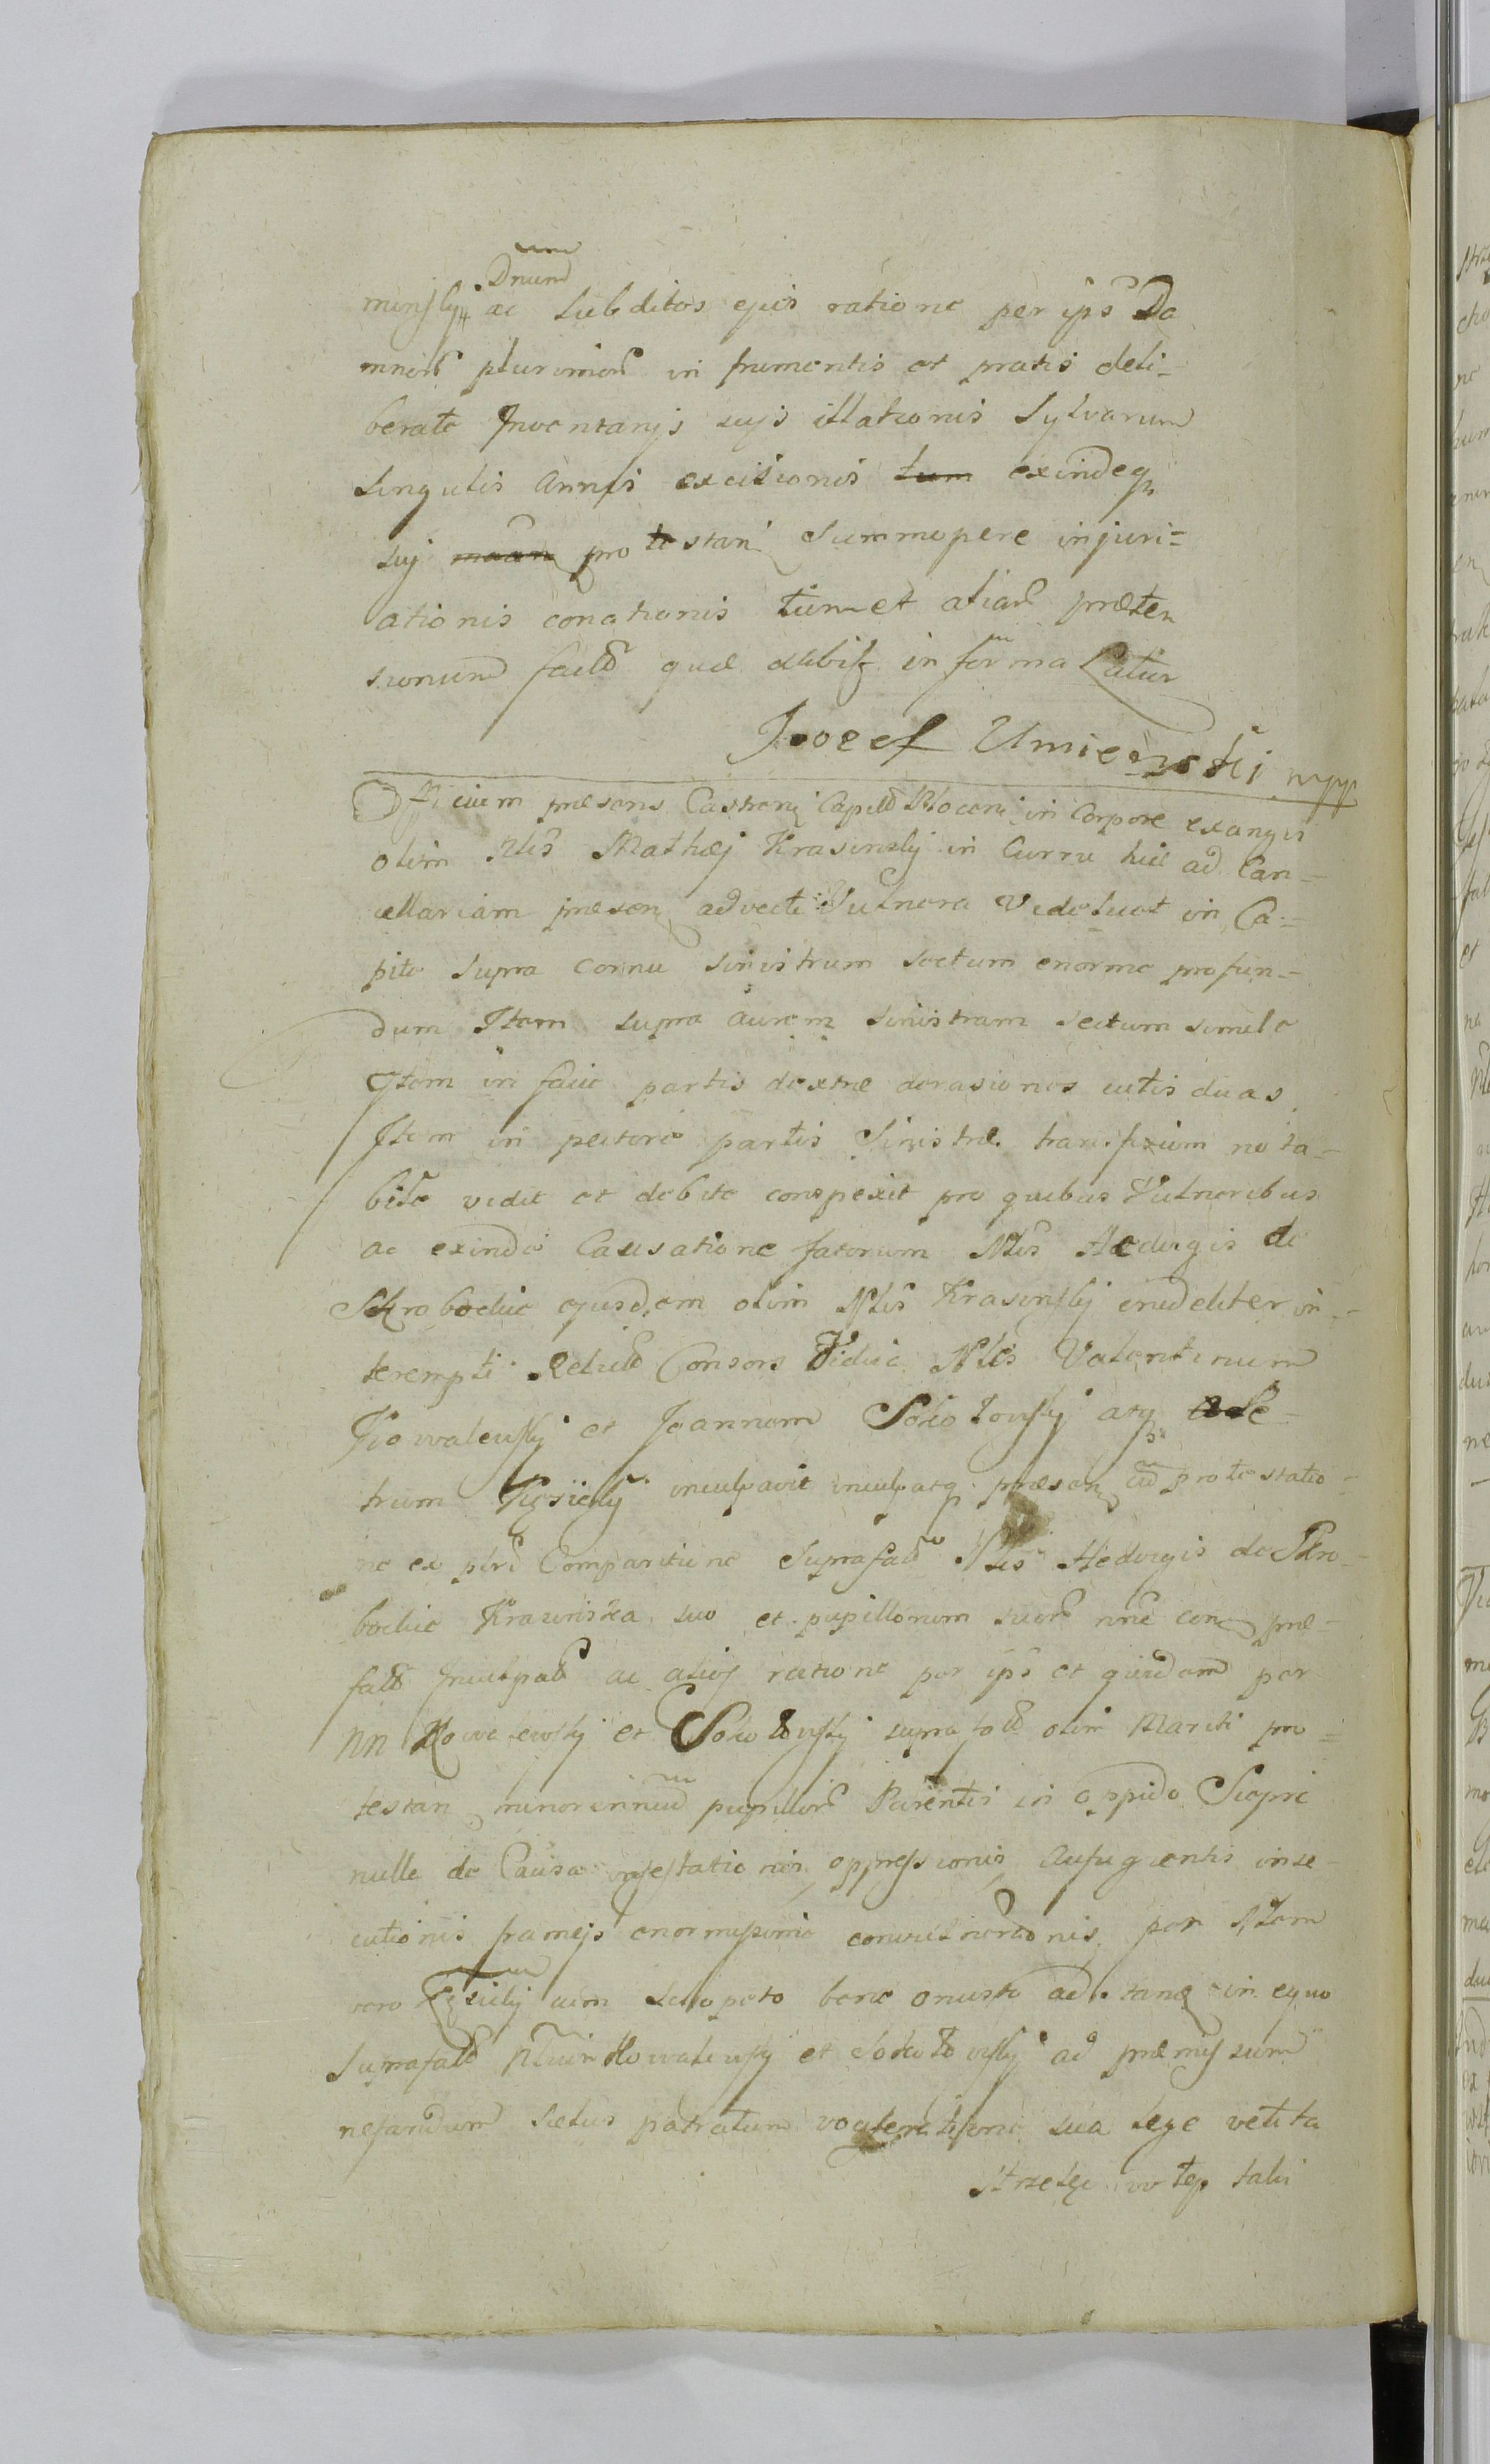 Dnum
minsky ac subditos ejus ratione per ips Da
mnor plurimor in frumentis et pratis deli-
berate Inventarijs suis illationis Sylvarum
singulis Annis excisionis tum exindeq
sui protestan Summopere injuri=
ationis conationis tum et aliar præten
sionum facta quæ exhibit in forma Latur
Jozef Umienski mpp
Officium præsens Castren Capitl Plocen in Corpore exangvi
olim Nlis Mathæj Krasinsky in Curru huc ad Can-
cellariam præsen advecti Vulnera Vide licet in Ca-
pite supra cornu sinistrum sectum enorme profun-
dum Item supra aurem sinistram sectum simile
Item in facie partis dextræ derasiones cutis duas
Item in pectore partis Sinistræ transfixum nota-
bile vidit et debite conspexit pro quibus Vulneribus
ac exinde Causatione fatorum Nlis Hedvigis de
Skrobockie ejusdem olim Nlis Krasinsky crudeliter in-
terempti Relict Consors Vidua Nles Valentinum
Kowalewsky et Joannem Sokolowsky atq Pe-
trum inculpavit inculpatq præsen cu protestatio-
ne ex psnli Comparitione Suprafat Nlis Hedvigis de Skro-
bockie Krasinska suo et pupillorum suor nne con præ-
fat Inculpat ac alios ratione per ips et quidem per
NN Kowalewsky et Sokolowsky suprafat olim Mariti pro-
testan minorennium pupillor Parentis in oppido Sieprc
nulle de Causa infestationis oppressionis Aufugientis inse
cutionis frameis enormissimæ convulnerationis per Nlem
vero cum sclopeto bene onusto adstan in equo
Suprafat Nlium Kowalewsky et Sokolowsky ad præmissum
nefandum scelus patratum vociferatione sua lege vetita
strzelę w łep taki